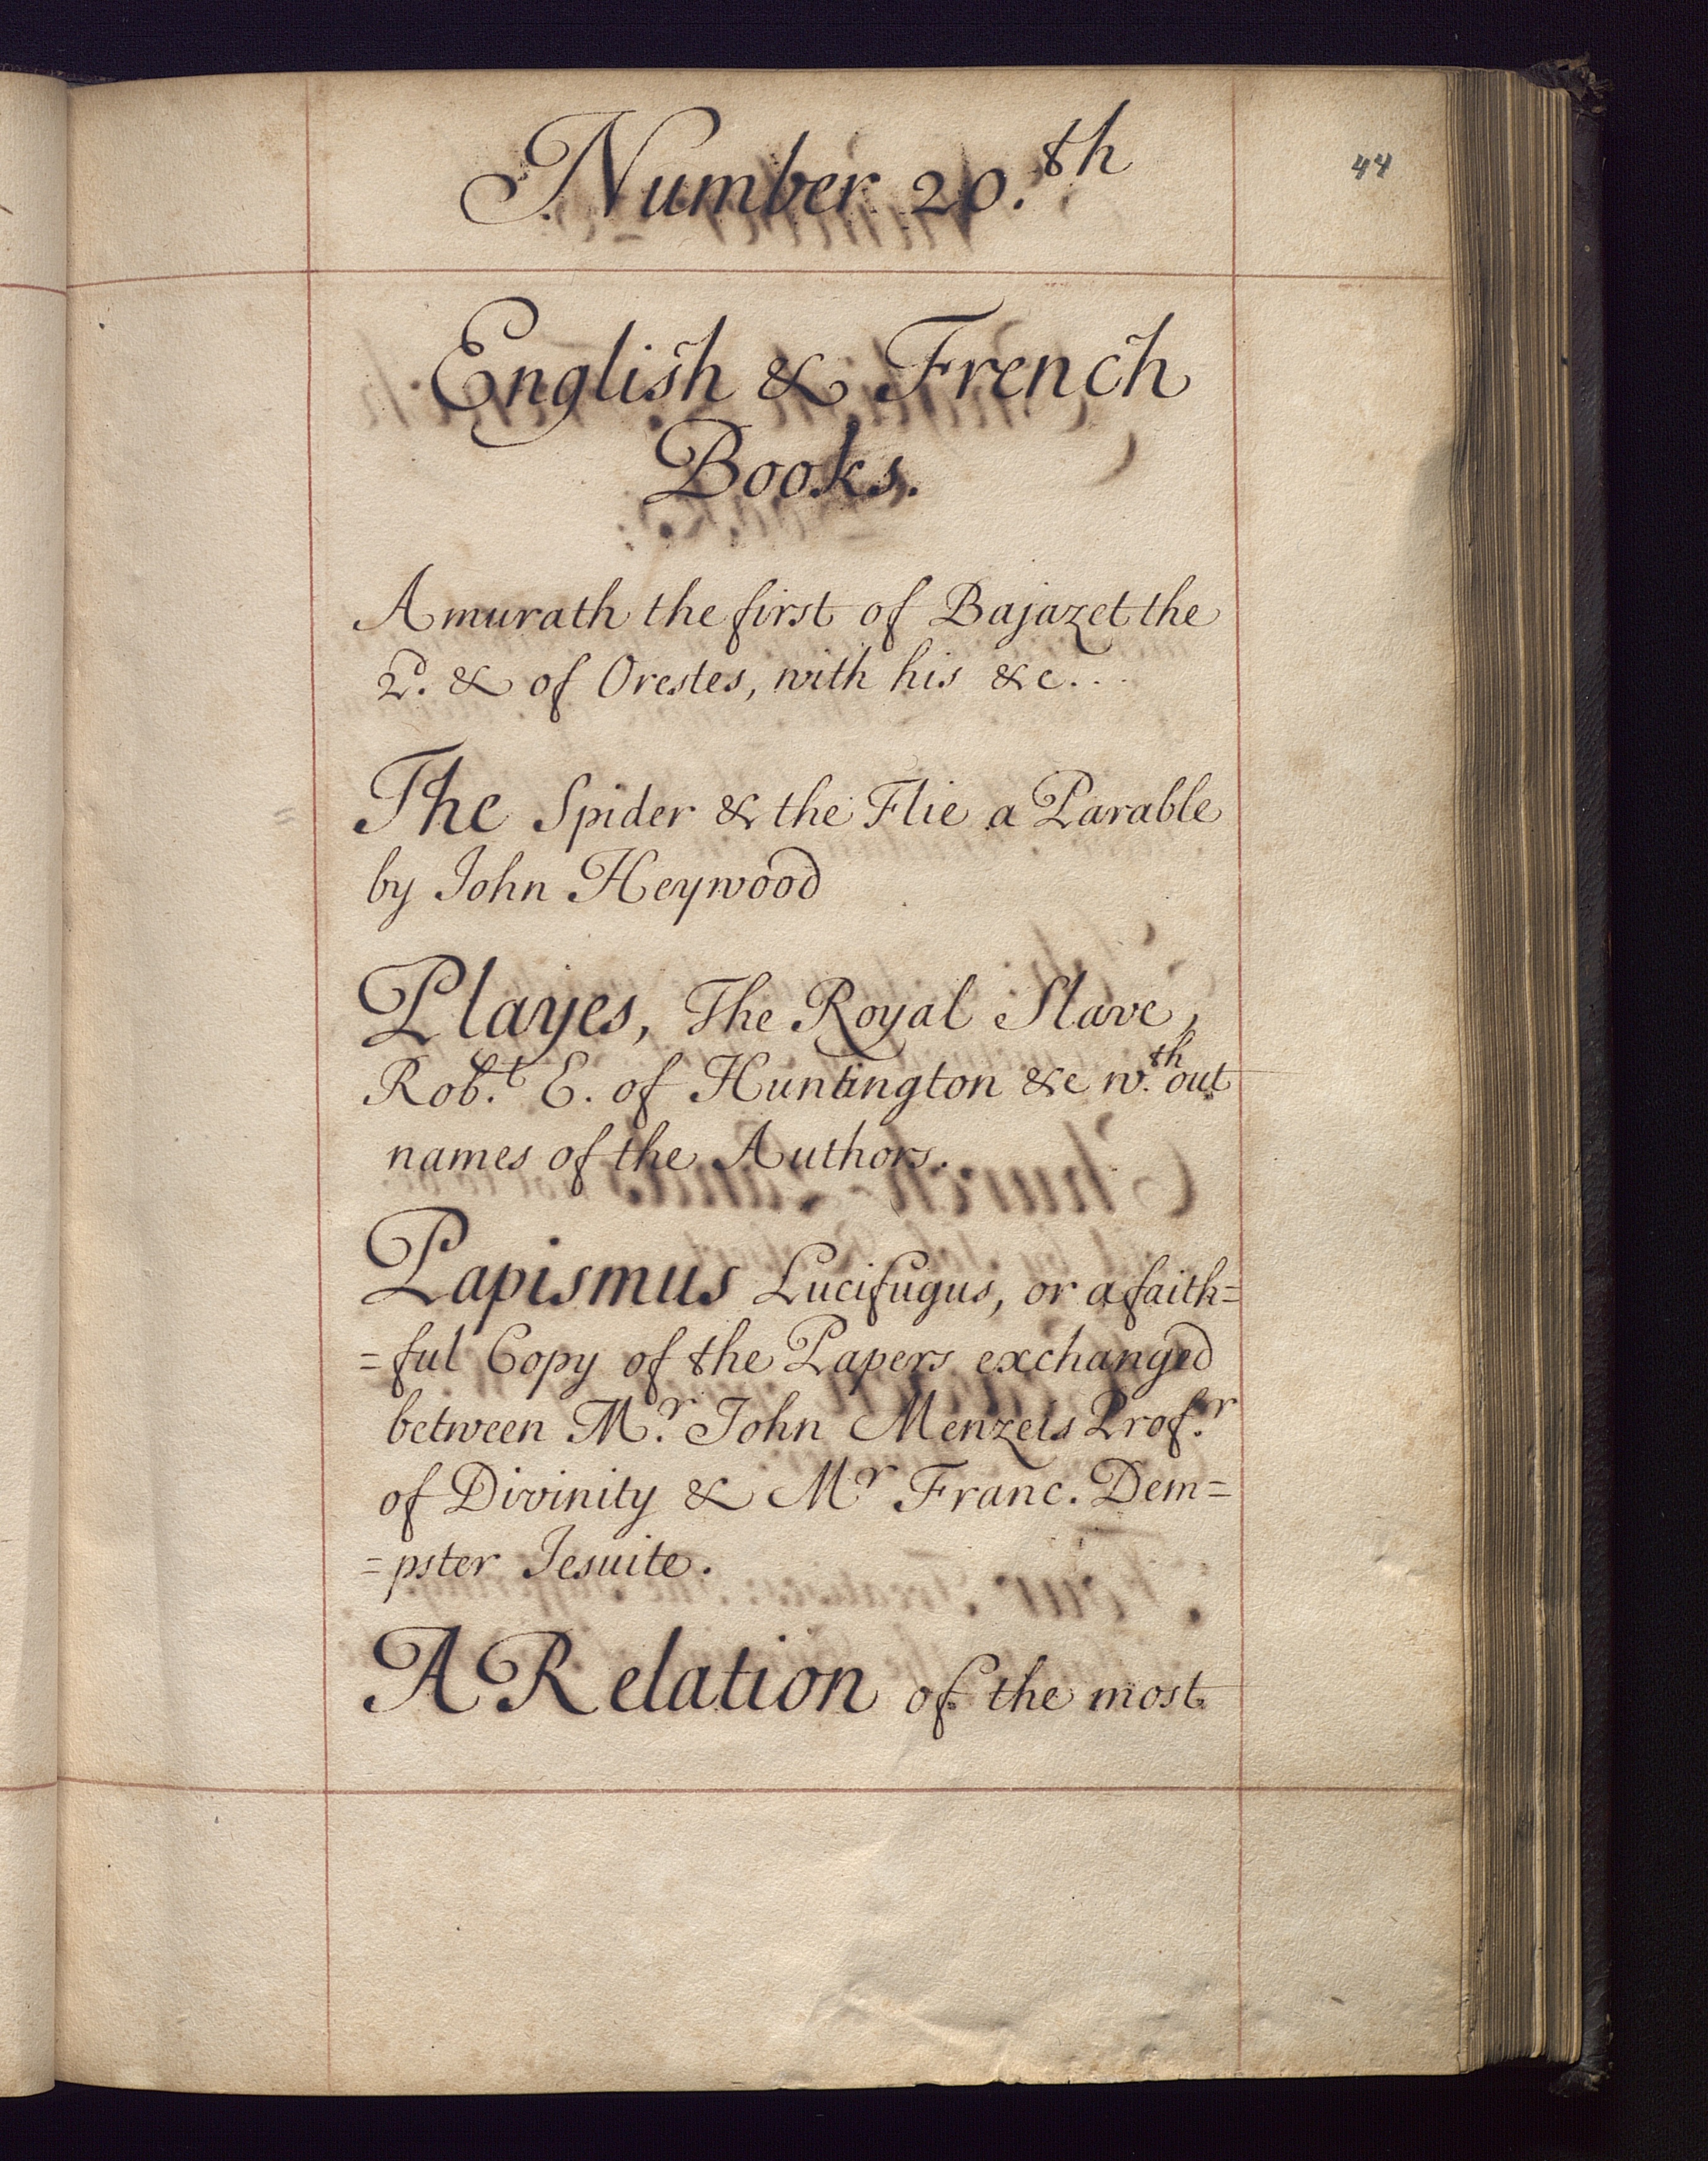 Number 20.th
44
English & French
Books.
Amurath the first of Bajazet the
2d. & of Orestes, with his &c...
The Spider & the Flie a Parable
by John Heywood
Playes, The Royal Slave,
Rob.t E. of Huntington &c w.th out
names of the Authors.
Papismus Lucifugus, or a faith=
=ful Copy of the Papers exchanged
between M.r John Menzeis Prof.r
of Divinity & Mr Franc. Dem=
=pster Jesuite.
A Relation of the most